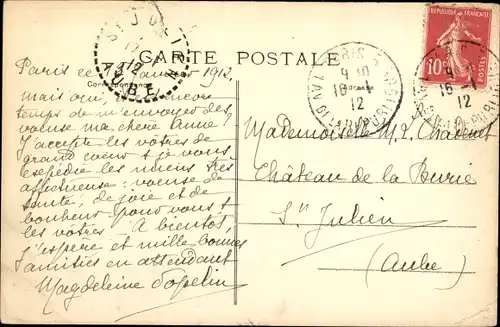 CARTE POSTALE
REPUBLIQUE FRANÇAISE
10c
POSTES
ST JULIEN
AUBE
12
PARIS
9
16 -1
12
Correspondance
Adresse
Paris ce janvier 1912.
mais oui, encore
temps de m'envoyer des
vœux ma chère Anne
J'accepte les vôtres de
grand cœur et je vous
expédie les miens très
affectueux : vœux de
santé, de joie et de
bonheur pour vous &
les vôtres. A bientôt,
j'espère et mille bonnes
amitiés en attendant
Magdeleine
Mademoiselle M. L. Chadnet
Château de la Burie
St Julien
(Aube)